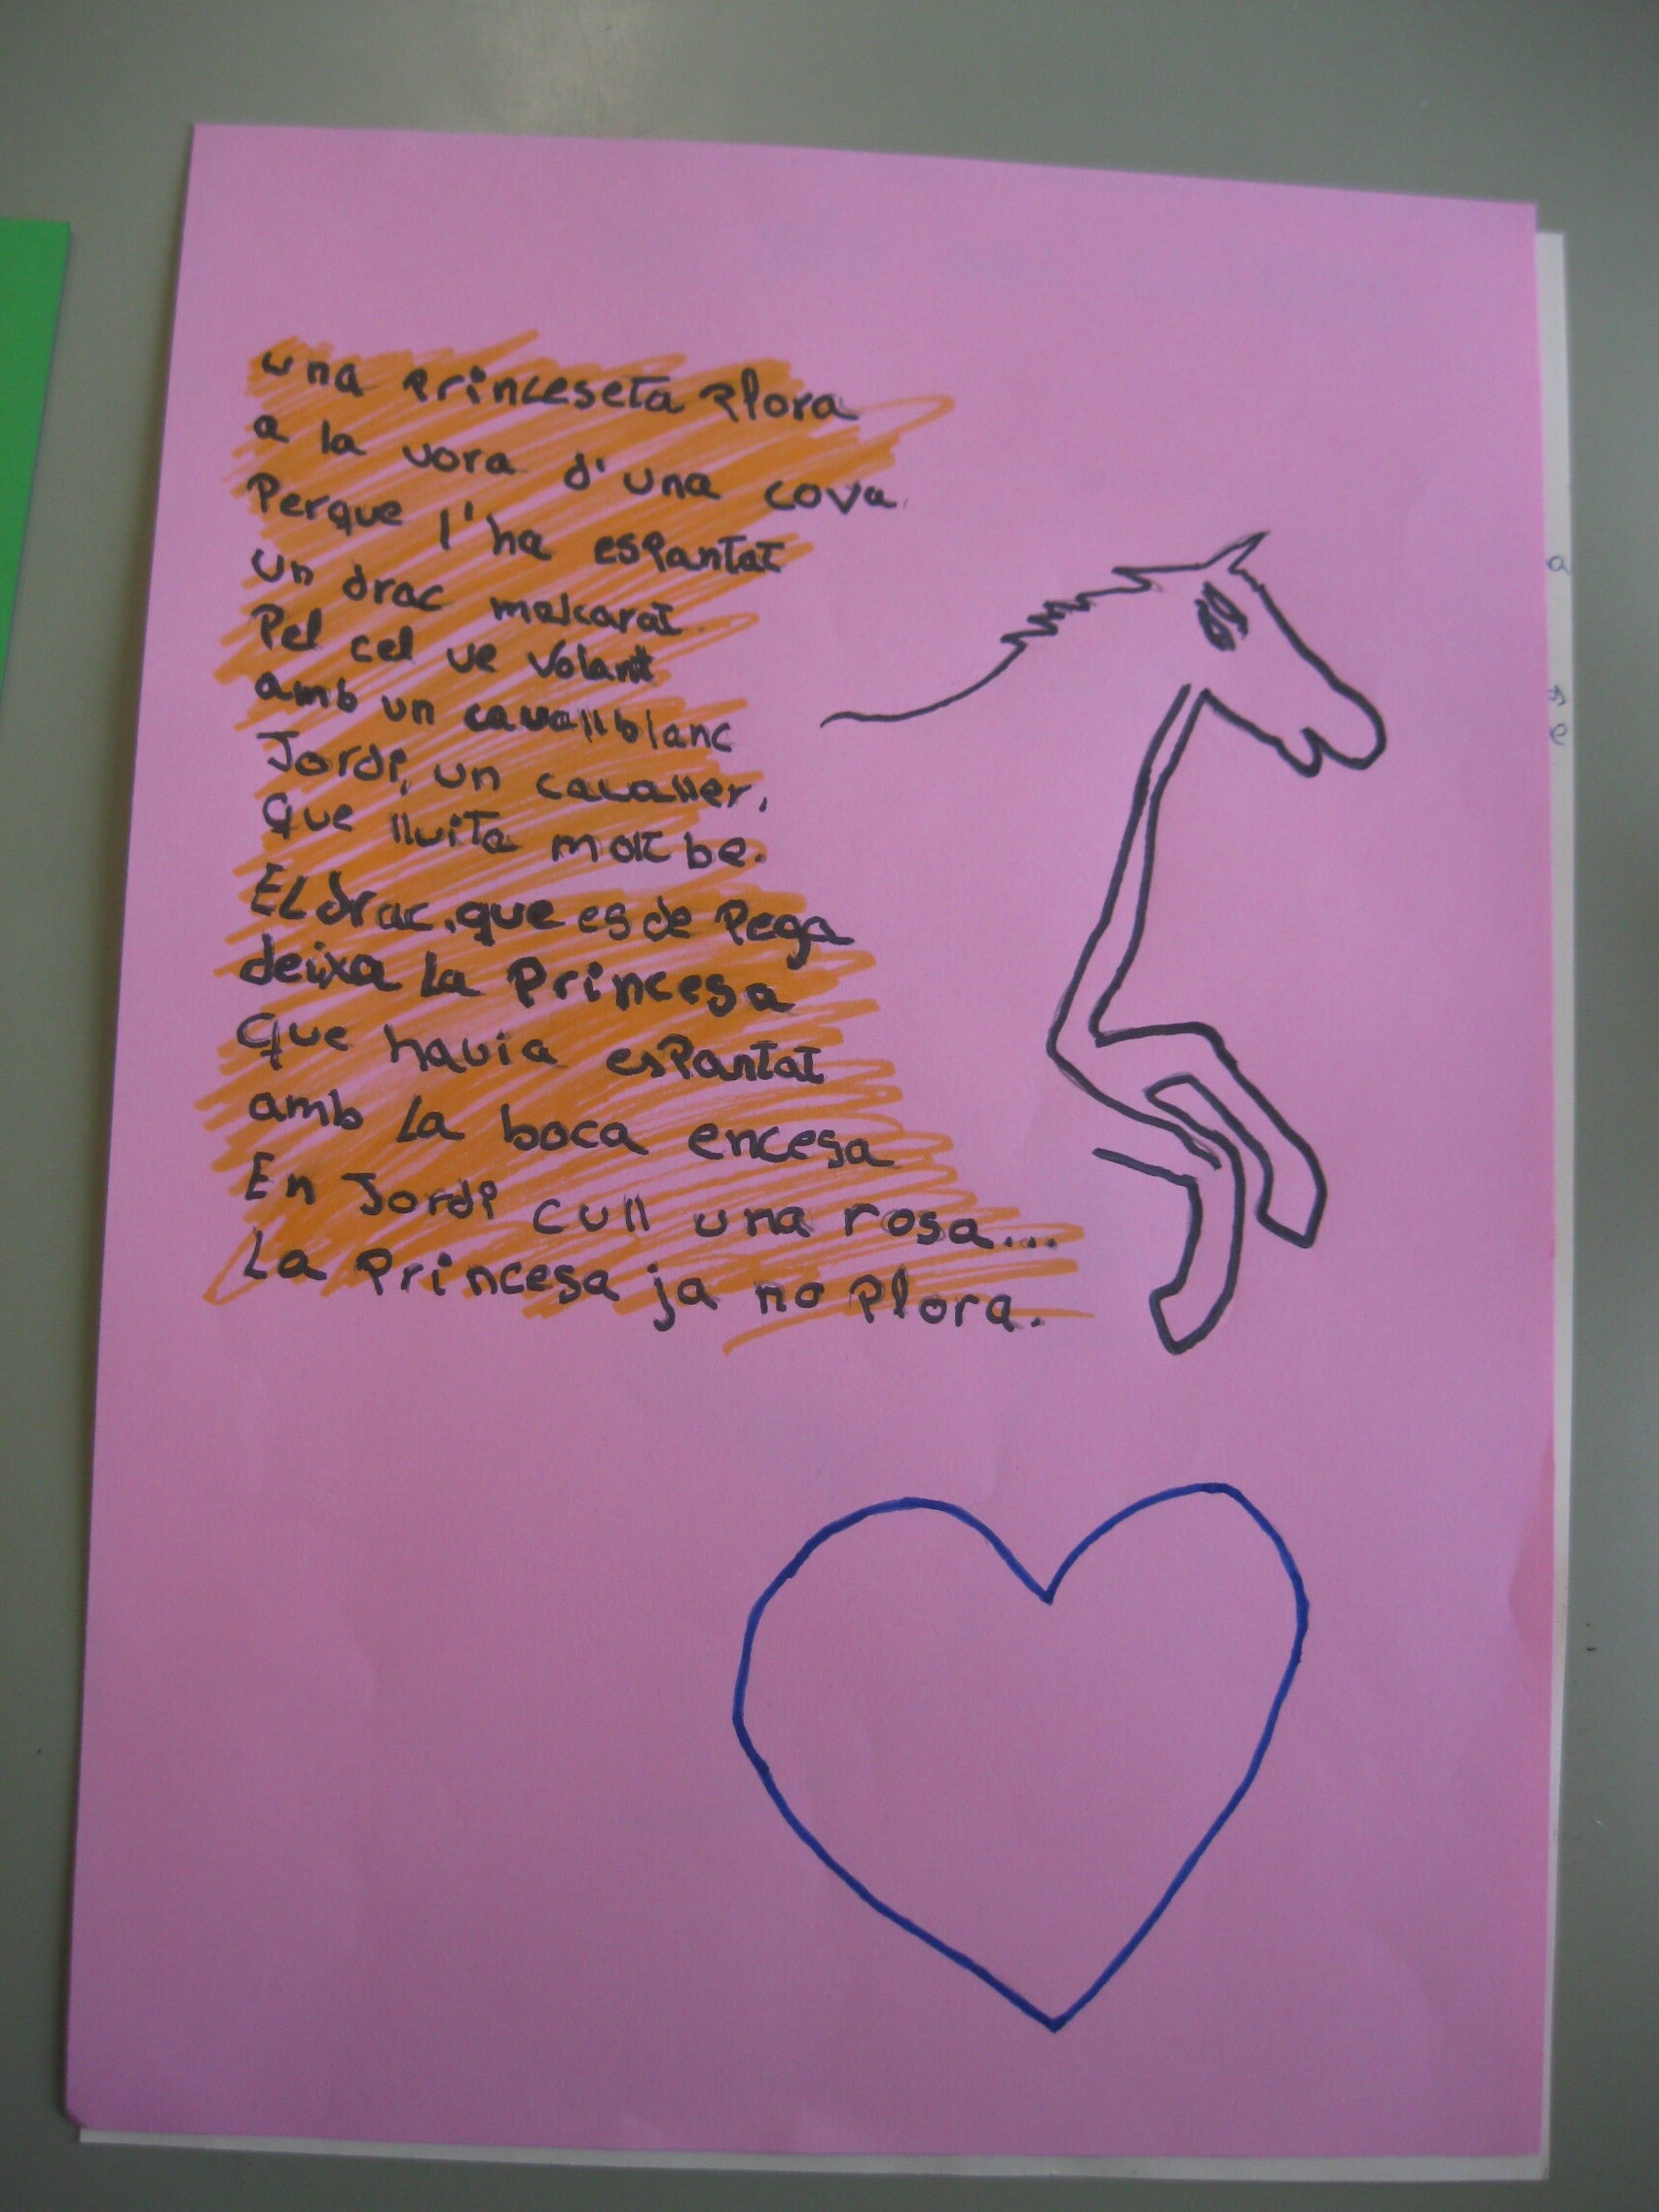 una princeseta plora
a la vora d'una cova
Perque l'ha espantat
un drac malcarat.
Pel cel ve volant
amb un cavall blanc
Jordi, un cavaller,
que lluita molt be.
EL drac, que es de pega
deixa la princesa
que havia espantat
amb La boca encesa
En Jordi cull una rosa...
La princesa ja no plora.
a
s
e